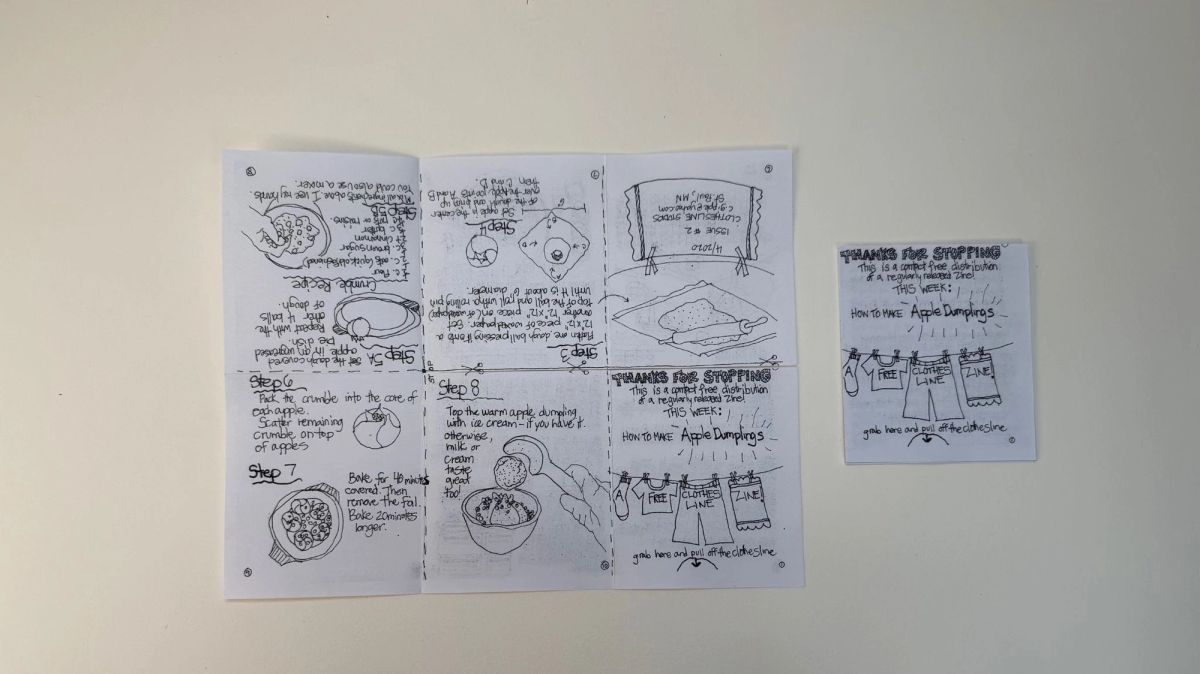 Step 5A Set the dough covered
apple in an ungreased
Pie dish.
Repeat with the
other 4 balls
of dough.
Crumble Recipe
c. Flour
c. oats (quick, old fashioned)
c. brown sugar
cinnamon
c. butter
nuts or raisins
Step 5B
Mix all ingredients above. I use my hands.
You could also use a mixer.
8
Step 3
Flatten one dough ball pressing it onto a
12"x12" piece of waxed paper. Set
another 12"x12" piece on( of waxed paper)
top of the ball and roll with a rolling pin
until it is about 6" diameter.
A
B
C
D
Step 4
Set apple in the center
of the dough and bring up
over the apple, points A and B
then C and D.
7
4/2020
ISSUE #2
CLOTHESLINE STUDIOS
St. Paul, MN
Step 6
Pack the crumble into the core of
each apple.
Scater remaining
crumble on top
of apples
Step 7
Bake for 40 minutes
covered. Then
remove the foil.
Bake 20 minutes
longer.
Step 8
Top the warm apple dumpling
with ice cream - if you have it.
otherwise,
milk or
cream
taste
great
too!
10
THANKS FOR STOPPING
This is a compact free distribution
of a regularly released Zine!
THIS WEEK:
HOW TO MAKE Apple Dumplings
A FREE CLOTHES LINE ZINE!
grab here and pull off the clothesline
1
THANKS FOR STOPPING
This is a compact free distribution
of a regularly released Zine!
THIS WEEK:
HOW TO MAKE Apple Dumplings
A FREE CLOTHES LINE ZINE!
grab here and pull off the clothesline